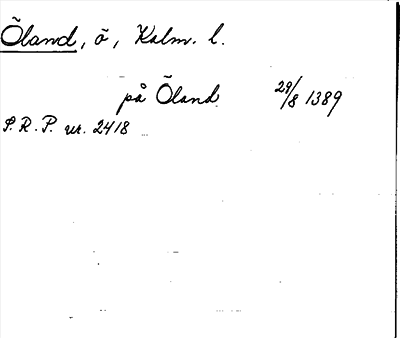 Öland, ö, Kalm. l.
på Öland 29/8 1389
S.R.P. nr. 2418